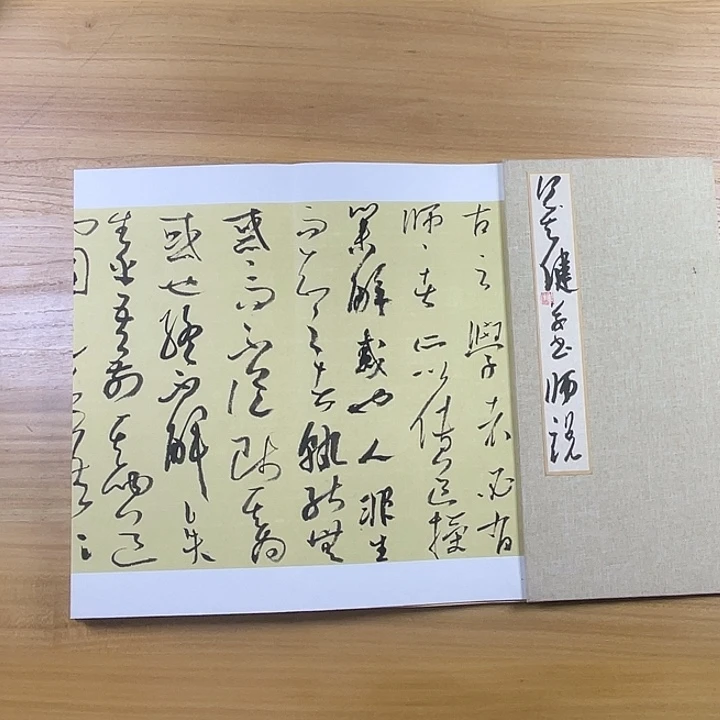 健草书师说
古之學者必有
师、者所以传道授
業解惑也人非生
而知之者孰能無
惑、而不從师其為
惑也終不解矣
生乎吾前其聞道
也固